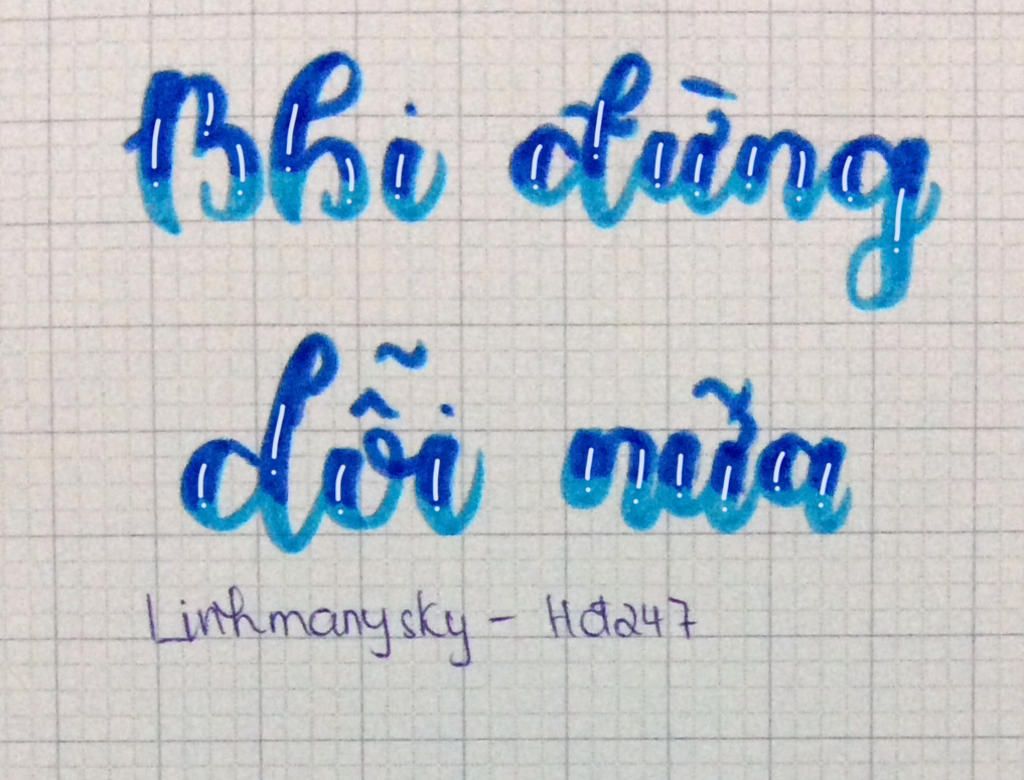 Bhi đừng
dỗi nữa
Linhmanysky - Hđ247